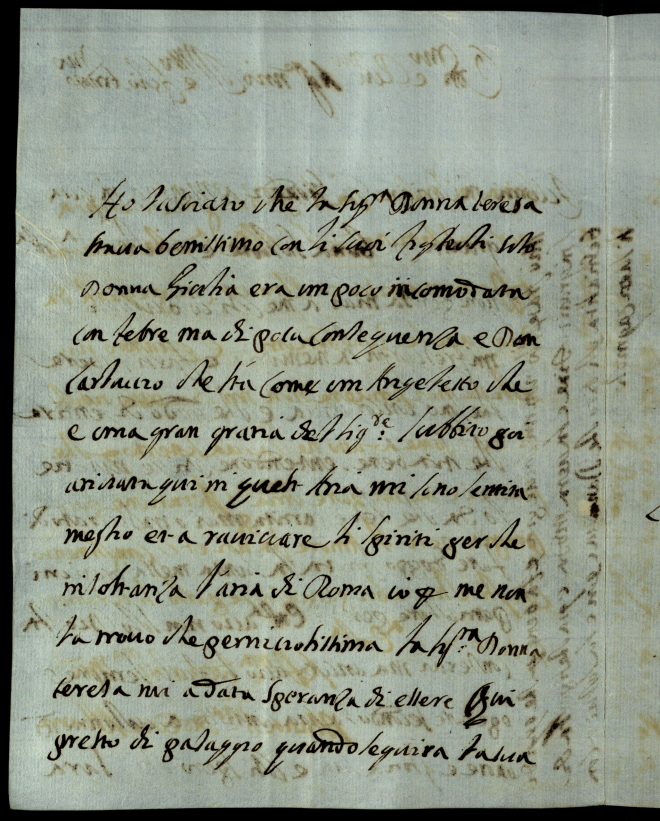 Ho lasciato che la sig.ra Donna teresa
staua benissimo con li suoi figletti solo
Donna Cicilia era un poco incomodata
con febre ma di poca consequenza e Don
Carluccio che sta come un Angeletto che
e una gran gratia del sig.re subbito poi
ariuata qui in quest Aria mi sino sentita
meglio et a rauiuare li spiriti per che
in sostanza l'aria di Roma io p me non
la trouo che perniciosissima la sig.ra Donna
teresa mi a data speranza di essere qui
presto di passaggio quando seguira la sua